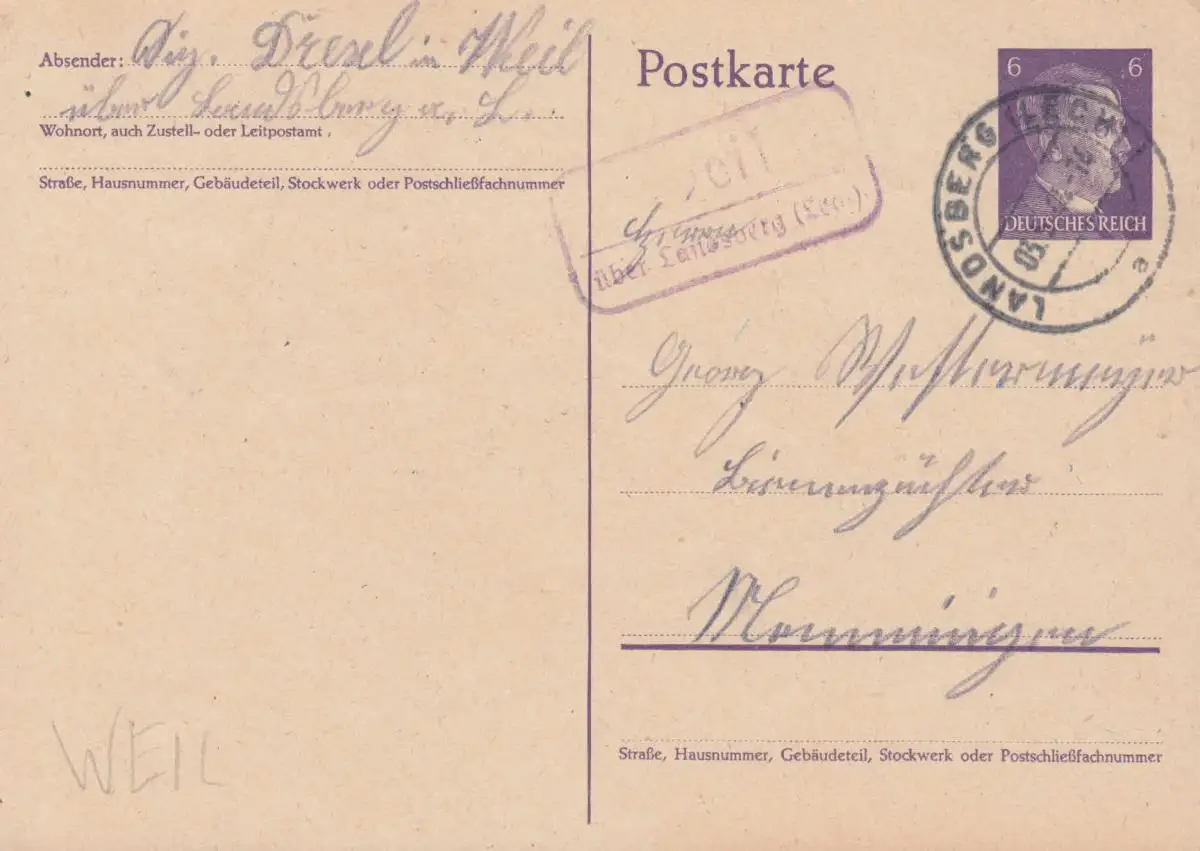 Absender: Sig. Drexl in Weil
über Landsberg a. L.
Wohnort, auch Zustell- oder Leitpostamt
Straße, Hausnummer, Gebäudeteil, Stockwerk oder Postschließfachnummer
WEIL
Postkarte
6 6
DEUTSCHES REICH
LANDSBERG (LECH)
03
a
Weil
über Landsberg (Lech).
Herrn
Georg Westermayer
Bienenzüchter
Memmingen
Straße, Hausnummer, Gebäudeteil, Stockwerk oder Postschließfachnummer